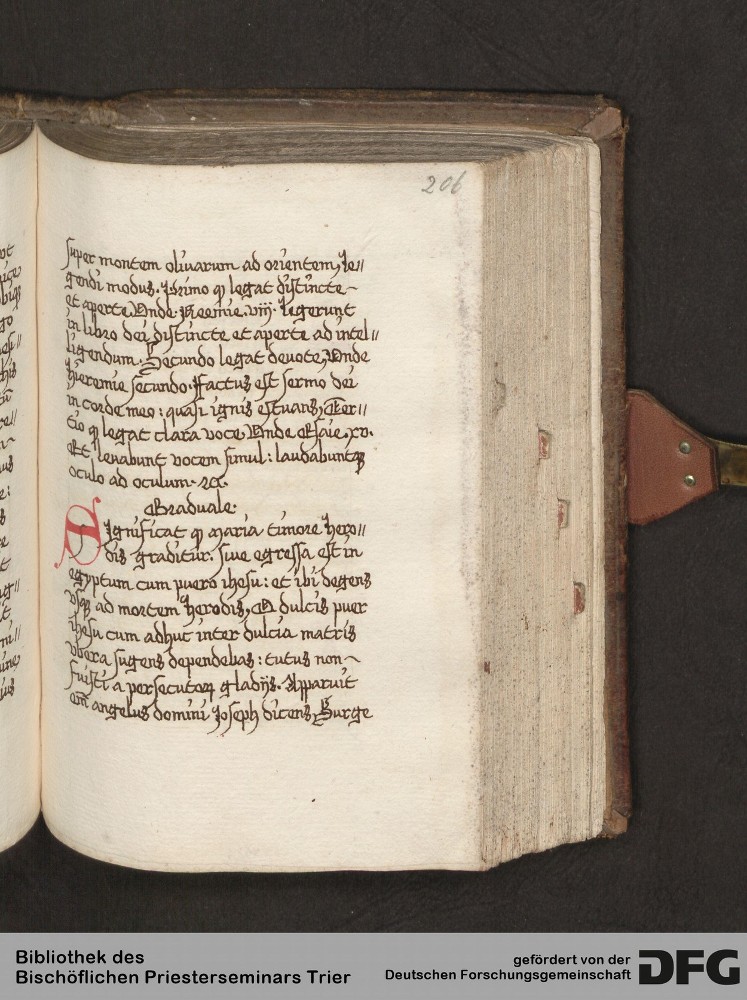 206
super montem oliuarum ad orientem, Le//
gendi modus. Primo ꝙ legat distincte
et aperte, Vnde Neemie. viij. Legerunt
in libro dei distincte et aperte ad intel//
ligendum. Secundo legat deuote, Vnde
hieremie secundo. Factus est sermo dei
in corde meo: quasi ignis estuans, Ter//
tio ꝙ legat clara voce, Vnde Esaie. xv.
Et leuabunt vocem simul: laudabuntꝙ
oculo ad oculum. ꝛc.
Graduale.
Significat ꝙ maria timore hero//
dis graditur. siue egressa est in
egyptum cum puero ihesu: et ibi degens
vsqꝫ ad mortem herodis, O dulcis puer
ihesu cum adhuc inter dulcia matris
vbera sugens dependebas: tutus non
fuisti a persecutorꝝ gladijs. Apparuit
em̄ angelus domini Joseph dicens, Surge
Bibliothek des
Bischöflichen Priesterseminars Trier
gefördert von der
Deutschen Forschungsgemeinschaft
DFG